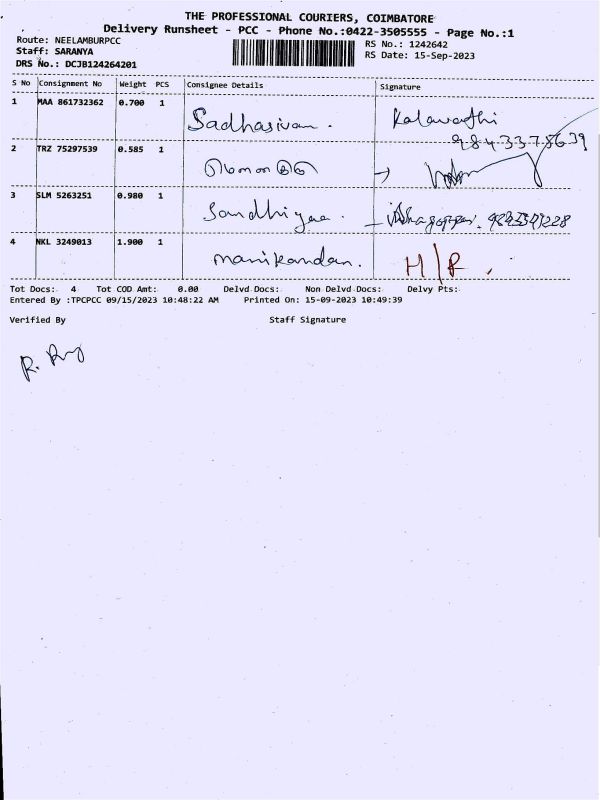 THE PROFESSIONAL COURIERS, COIMBATORE
Delivery Runsheet - PCC - Phone No.:0422-3505555 - Page No.:1
Route: NEELAMBURPCC
RS No.: 1242642
Staff: SARANYA
RS Date: 15-Sep-2023
DRS No.: DCJB124264201
S No Consignment No Weight PCS Consignee Details Signature
1 MAA 861732362 0.700 1 Sadhasivan. Kalavathi
9843378639
2 TRZ 75297539 0.585 1
3 SLM 5263251 0.980 1 Sandhiyaa.
4 NKL 3249013 1.900 1 manikandan. H/R.
Tot Docs: 4 Tot COD Amt: 0.00 Delvd Docs: Non Delvd Docs: Delvy Pts:
Entered By :TPCPCC 09/15/2023 10:48:22 AM Printed On: 15-09-2023 10:49:39
Verified By Staff Signature